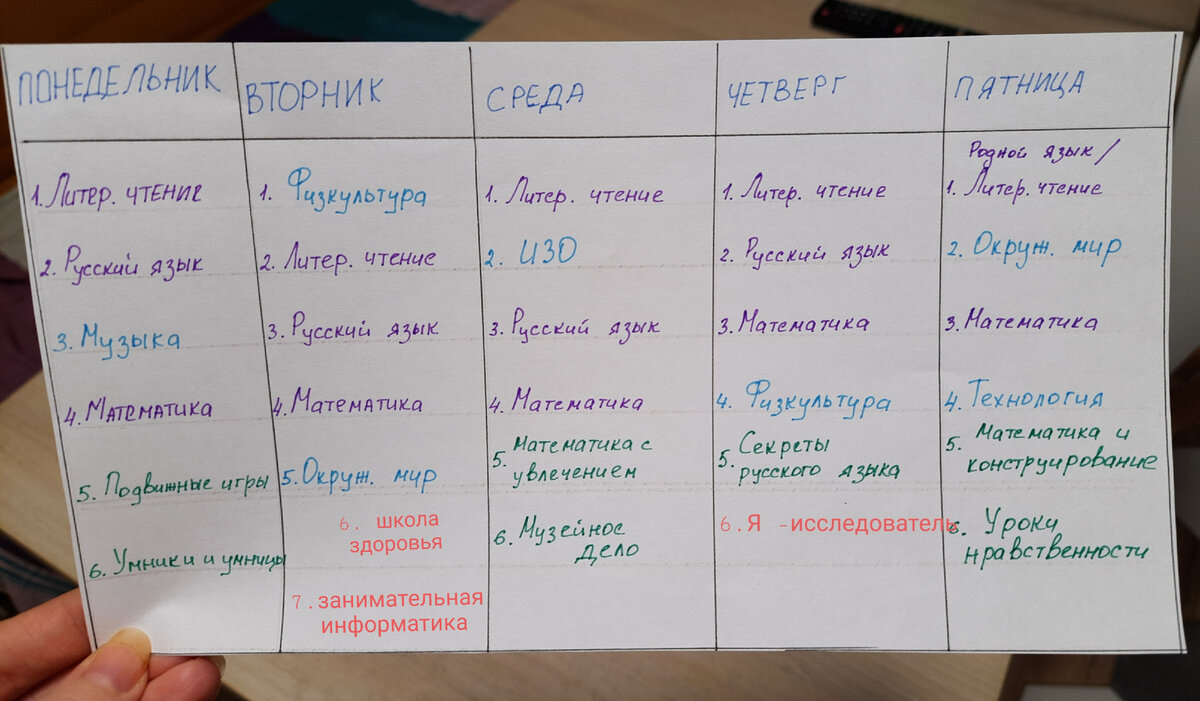 ПОНЕДЕЛЬНИК
1. Литер. чтение
2. Русский язык
3. Музыка
4. Математика
5. Подвижные игры
6. Умники и умницы
ВТОРНИК
1. Физкультура
2. Литер. чтение
3. Русский язык
4. Математика
5. Окруж. мир
6. школа
здоровья
7. занимательная
информатика
СРЕДА
1. Литер. чтение
2. ИЗО
3. Русский язык
4. Математика
5. Математика с
увлечением
6. Музейное
дело
ЧЕТВЕРГ
1. Литер. чтение
2. Русский язык
3. Математика
4. Физкультура
5. Секреты
русского языка
6. Я -исследователь
ПЯТНИЦА
Родной язык /
1. Литер. чтение
2. Окруж. мир
3. Математика
4. Технология
5. Математика и
конструирование
6. Уроки
нравственности